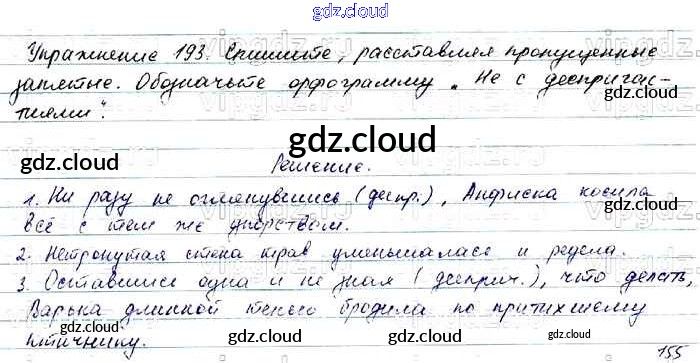 gdz.cloud
Упражнение 193. Спишите, расставляя пропущенные
запятые. Обозначьте орфограмму „Не с деепричас-
тиями".
gdz.cloud
gdz.cloud gdz.cloud
Решение.
1. Ни разу не оглянувшись (деепр.), Анфиска косила
всё с тем же упорством.
2. Нетронутая стена трав уменьшалась и редела.
3. Оставшись одна и не зная (дееприч.), что делать,
Варька длинной тенью бродила по притихшему
птичнику.
gdz.cloud gdz.cloud
155